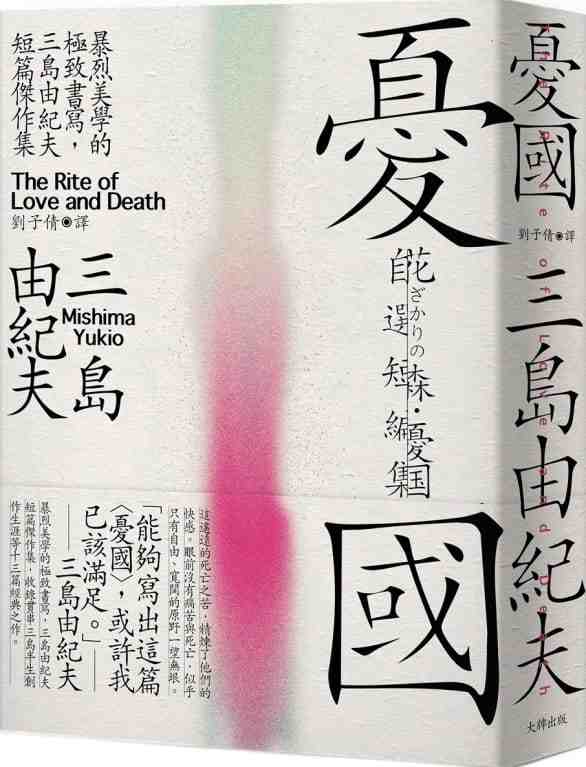 暴烈美學的
極致書寫，
三島由紀夫
短篇傑作集
The Rite of
Love and Death
劉予倩◉譯
三島
由紀夫
Mishima
Yukio
憂
國
花ざかりの森・憂国
自選短編集
「能夠寫出這篇
〈憂國〉，或許我
已該滿足。」
——三島由紀夫——
這邈遠的死亡之苦，精鍊了他們的
快感。眼前沒有痛苦與死亡，似乎
只有自由、寬闊的原野一望無垠。
暴烈美學的極致書寫，三島由紀夫
短篇傑作集，收錄貫串三島半生創
作生涯等十三篇經典之作。
憂國
劉予倩◉譯
三島由紀夫
The Rite of Love and Death
大牌出版